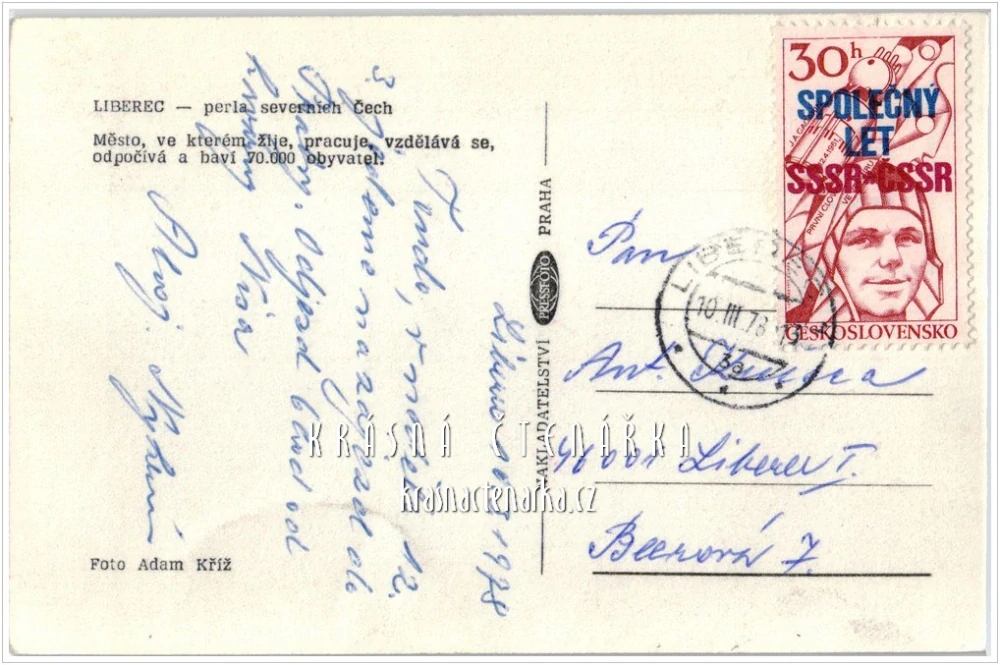 LIBEREC — perla severních Čech
Město, ve kterém žije, pracuje, vzdělává se,
odpočívá a baví 70.000 obyvatel.
Liberec 10 3 1978
Tondo, v neděli 12.
3. jedeme na zájezd do
Prahy. Odjezd 6 hod od
Nisa
Ahoj.
Foto Adam Kříž
NAKLADATELSTVÍ PRESSFOTO PRAHA
30h
SPOLEČNÝ
LET
SSSR-ČSSR
ČESKOSLOVENSKO
LIBEREC
10.III.78-19
Pan
Ant.
46001 Liberec I.
7.
KRÁSNÁ ČTENÁŘKA
krasnactenarka.cz